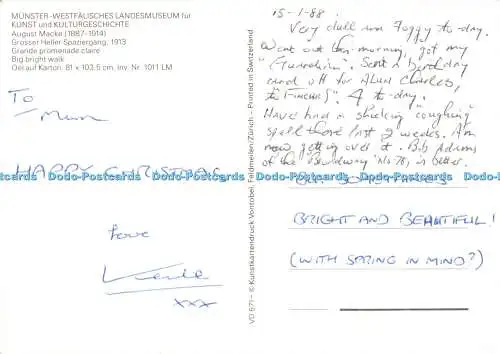 MÜNSTER-WESTFÄLISCHES LANDESMUSEUM für
KUNST und KULTURGESCHICHTE
August Macke (1887-1914)
Grosser Heller Spaziergang, 1913
Grande promenade claire
Big bright walk
Oel auf Karton. 81 x 103,5 cm. Inv. Nr. 1011 LM
To
Mum
HAPPY CHRISTMAS
Love
xxx
VD 671 - © Kunstkartendruck Vontobel, Feldmeilen/Zürich - Printed in Switzerland
15-1-88.
Very dull and Foggy to-day.
Went out this morning, got my
"Guardian". Sent a birthday
card off for Alan Charles,
4 to-day.
Have had a shocking "coughing
spell these last 2 weeks. Am
now getting over it. Bob Adams
of the Broadway No 78, is better.
BRIGHT AND BEAUTIFUL!
(WITH SPRING IN MIND?)
Dodo-Postcards Dodo-Postcards Dodo-Postcards Dodo-Postcards Dodo-Postcards Dodo-Postcards